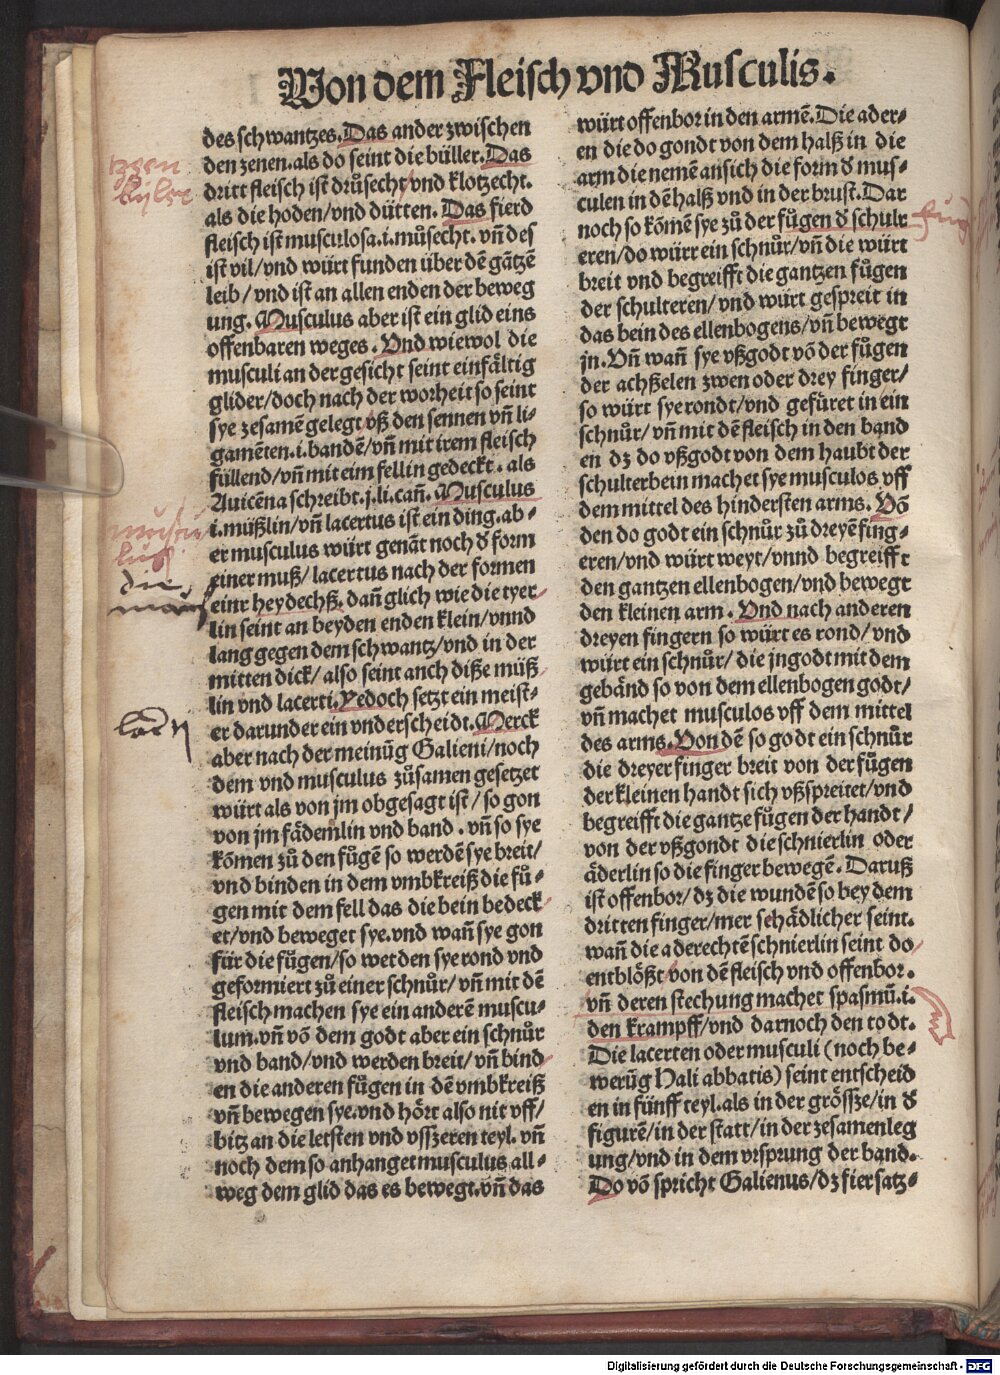 Von dem Fleisch vnd Musculis.
des schwantzes. Das ander zwischen
den zenen. als do seint die büller. Das
dritt fleisch ist drůsecht/ vnd klotzecht.
als die hoden/ vnd dütten. Das fierd
fleisch ist musculosa .i. můsecht. vñ des
ist vil/ vnd würt funden über dē gātzē
leib/ vnd ist an allen enden der beweg
ung. Musculus aber ist ein glid eins
offenbaren weges. Vnd wiewol die
musculi an der gesicht seint einfåltig
glider/ doch nach der worheit so seint
sye zesamē gelegt vß den sennen vñ li-
gamēten .i. bandē/ vñ mit irem fleisch
füllend/ vñ mit eim fellin gedeckt. als
Auicēna schreibt .j. li. cañ. Musculus
.i. müßlin/ vñ lacertus ist ein ding. ab-
er musculus würt genāt noch d̄ form
einer muß/ lacertus nach der formen
einr heydechß. dañ glich wie die tyer-
lin seint an beyden enden klein/ vnnd
lang gegen dem schwantz/ vnd in der
mitten dick/ also seint auch diße müß
lin vnd lacerti. Yedoch setzt ein meist-
er darunder ein vnderscheidt. Merck
aber nach der meinūg Galieni/ noch
dem vnd musculus zůsamen gesetzet
würt als von jm obgesagt ist/ so gon
von jm fådemlin vnd band. vñ so sye
kōmen zů den fůgē so werdē sye breit/
vnd binden in dem vmbkreiß die fů-
gen mit dem fell das die bein bedeck-
et/ vnd beweget sye. vnd wañ sye gon
für die fůgen/ so werden sye rond vnd
geformiert zů einer schnůr/ vñ mit dē
fleisch machen sye ein anderē muscu-
lum. vñ vō dem godt aber ein schnůr
vnd band/ vnd werden breit/ vñ bind-
en die anderen fůgen in dē vmbkreiß
vñ bewegen sye. vnd hôrt also nit vff/
bitz an die letsten vnd vsszeren teyl. vñ
noch dem so anhanget musculus all-
weg dem glid das es bewegt. vñ das
würt offenbor in den armē. Die ader-
en die do gondt von dem halß in die
arm die nemē an sich die form d̄ mus-
culen in dē halß vnd in der brust. Dar
noch so kōmē sye zů der fůgen d̄ schult
eren/ do würt ein schnůr/ vñ die würt
breit vnd begreifft die gantzen fůgen
der schulteren/ vnd würt gespreit in
das bein des ellenbogens/ vñ bewegt
jn. Vñ wañ sye vßgodt vō der fůgen
der achßelen zwen oder drey finger/
so würt sye rondt/ vnd gefüret in ein
schnůr/ vñ mit dē fleisch in den band
en dz do vßgodt von dem haubt der
schulterbein machet sye musculos vff
dem mittel des hindersten arms. Vō
den do godt ein schnůr zů dreyē fing-
eren/ vnd würt weyt/ vnnd begreifft
den gantzen ellenbogen/ vnd bewegt
den kleinen arm. Vnd nach anderen
dreyen fingern so würt es rond/ vnd
würt ein schnůr/ die jngodt mit dem
gebånd so von dem ellenbogen godt/
vñ machet musculos vff dem mittel
des arms. Von dē so godt ein schnůr
die dreyer finger breit von der fůgen
der kleinen handt sich vßspreitet/ vnd
begreifft die gantze fůgen der handt/
von der vßgondt die schnierlin oder
åderlin so die finger bewegē. Daruß
ist offenbor/ dz die wundē so bey dem
dritten finger/ mer schådlicher seint.
wañ die aderechtē schnierlin seint do
entblôßt von dē fleisch vnd offenbor.
vñ deren stechung machet spasmū .i.
den krampff/ vnd darnoch den todt.
Die lacerten oder musculi (noch be-
werūg Hali abbatis) seint entscheid
en in fünff teyl. als in der grôssze/ in d̄
figurē/ in der statt/ in der zesamenleg
ung/ vnd in dem vrsprung der band.
Do vō spricht Galienus/ dz fier satz-
die
Digitalisierung gefördert durch die Deutsche Forschungsgemeinschaft - DFG